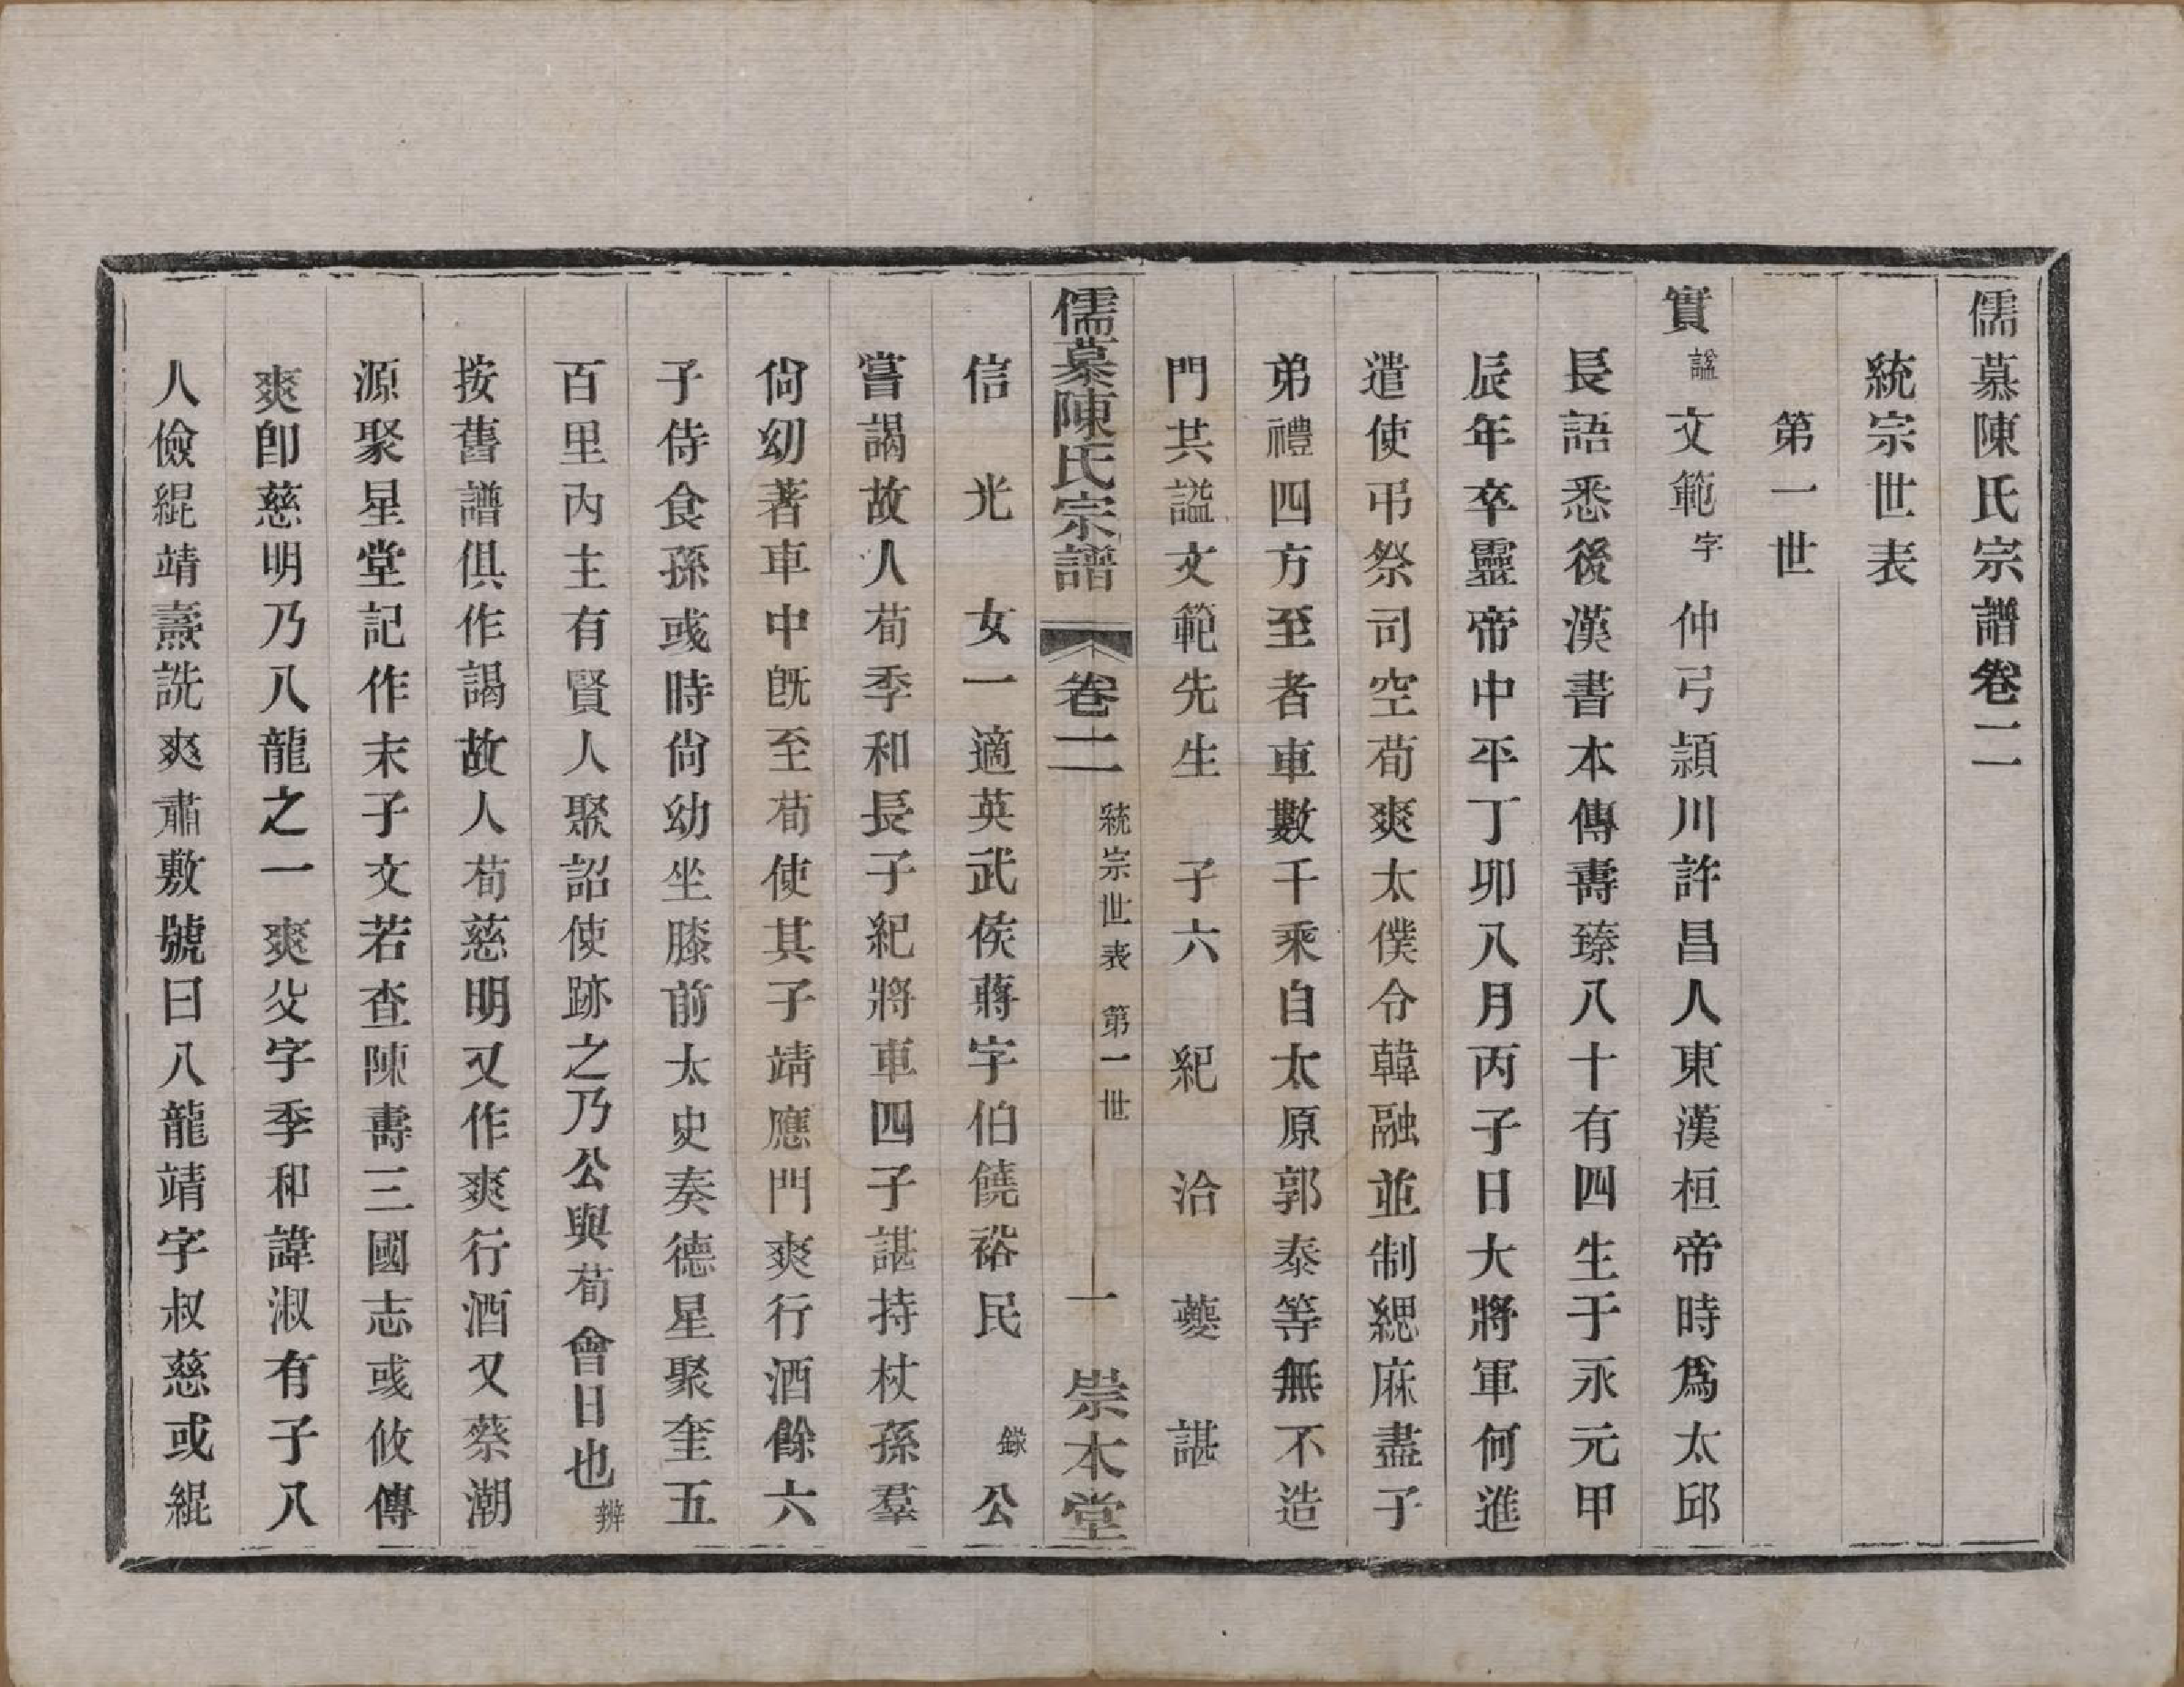 儒慕陳氏宗譜卷二
統宗世表
第一世
實諡文範字仲弓潁川許昌人東漢桓帝時爲太邱
長語悉後漢書本傳壽臻八十有四生于永元甲
辰年卒靈帝中平丁卯八月丙子日大將軍何進
遣使弔祭司空荀爽太僕令韓融並制緦麻盡子
弟禮四方至者車數千乘自太原郭泰等無不造
門共謚文範先生 子六 紀 洽 夔 諶
儒慕陳氏宗譜 卷二 統宗世表 第一世 一 崇本堂
信 光 女一適英武侯蔣字伯饒裕民 錄公
嘗謁故人荀季和長子紀將車四子諶持杖孫羣
尙幼著車中旣至荀使其子靖應門爽行酒餘六
子侍食孫彧時尙幼坐膝前太史奏德星聚奎五
百里內主有賢人聚詔使跡之乃公與荀會日也辨
按舊譜俱作謁故人荀慈明又作爽行酒又蔡潮
源聚星堂記作末子文若查陳壽三國志彧攸傳
爽卽慈明乃八龍之一爽父字季和諱淑有子八
人儉緄靖燾詵爽肅敷號曰八龍靖字叔慈或緄